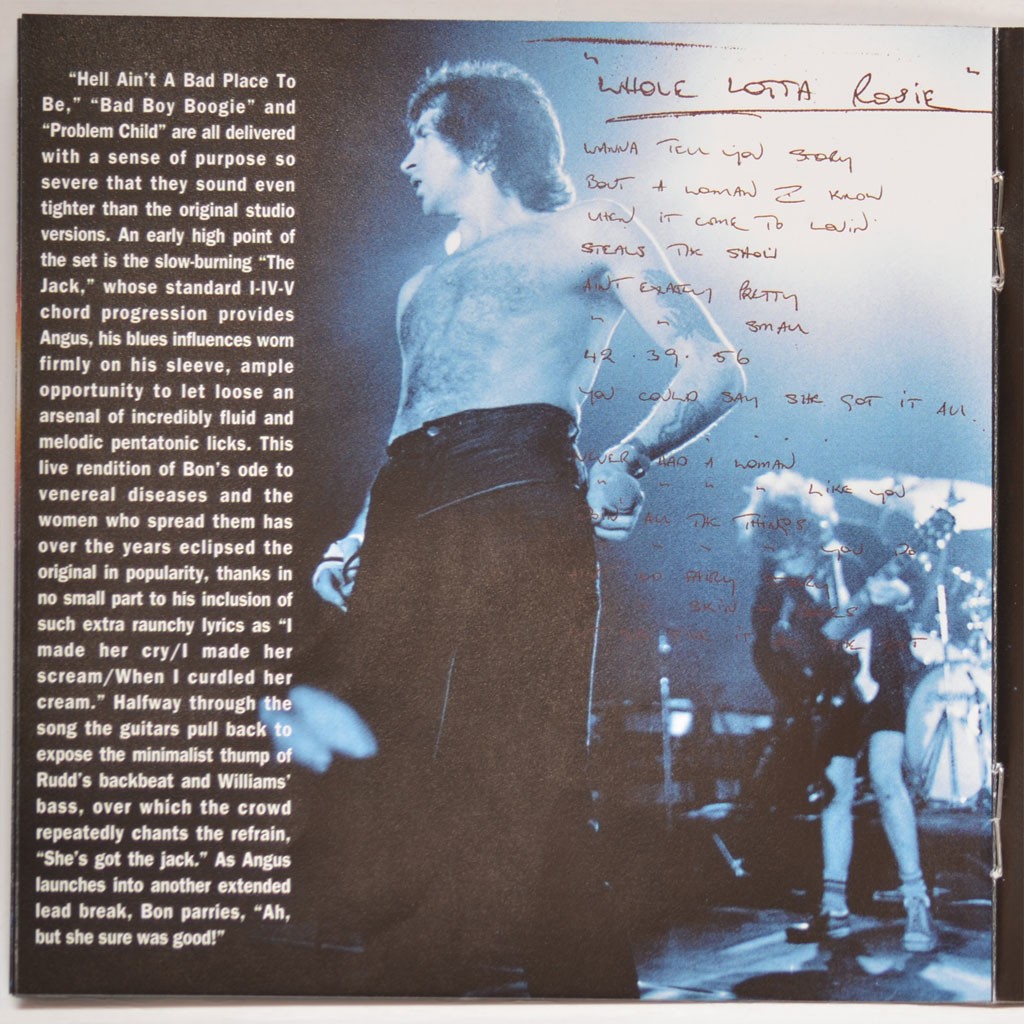 “Hell Ain’t A Bad Place To
Be,” “Bad Boy Boogie” and
“Problem Child” are all delivered
with a sense of purpose so
severe that they sound even
tighter than the original studio
versions. An early high point of
the set is the slow-burning “The
Jack,” whose standard I-IV-V
chord progression provides
Angus, his blues influences worn
firmly on his sleeve, ample
opportunity to let loose an
arsenal of incredibly fluid and
melodic pentatonic licks. This
live rendition of Bon’s ode to
venereal diseases and the
women who spread them has
over the years eclipsed the
original in popularity, thanks in
no small part to his inclusion of
such extra raunchy lyrics as “I
made her cry/I made her
scream/When I curdled her
cream.” Halfway through the
song the guitars pull back to
expose the minimalist thump of
Rudd’s backbeat and Williams’
bass, over which the crowd
repeatedly chants the refrain,
“She’s got the jack.” As Angus
launches into another extended
lead break, Bon parries, “Ah,
but she sure was good!”
"WHOLE LOTTA ROSIE"
WANNA TELL YOU STORY
BOUT A WOMAN I KNOW
WHEN IT COME TO LOVIN'
STEALS THE SHOW
AIN'T EXACTLY PRETTY
" " SMALL
42 . 39 . 56
YOU COULD SAY SHE GOT IT ALL
NEVER HAD A WOMAN
" " " " LIKE YOU
DOIN' ALL THE THINGS
" " " YOU DO
FAIRY STORY
SKIN